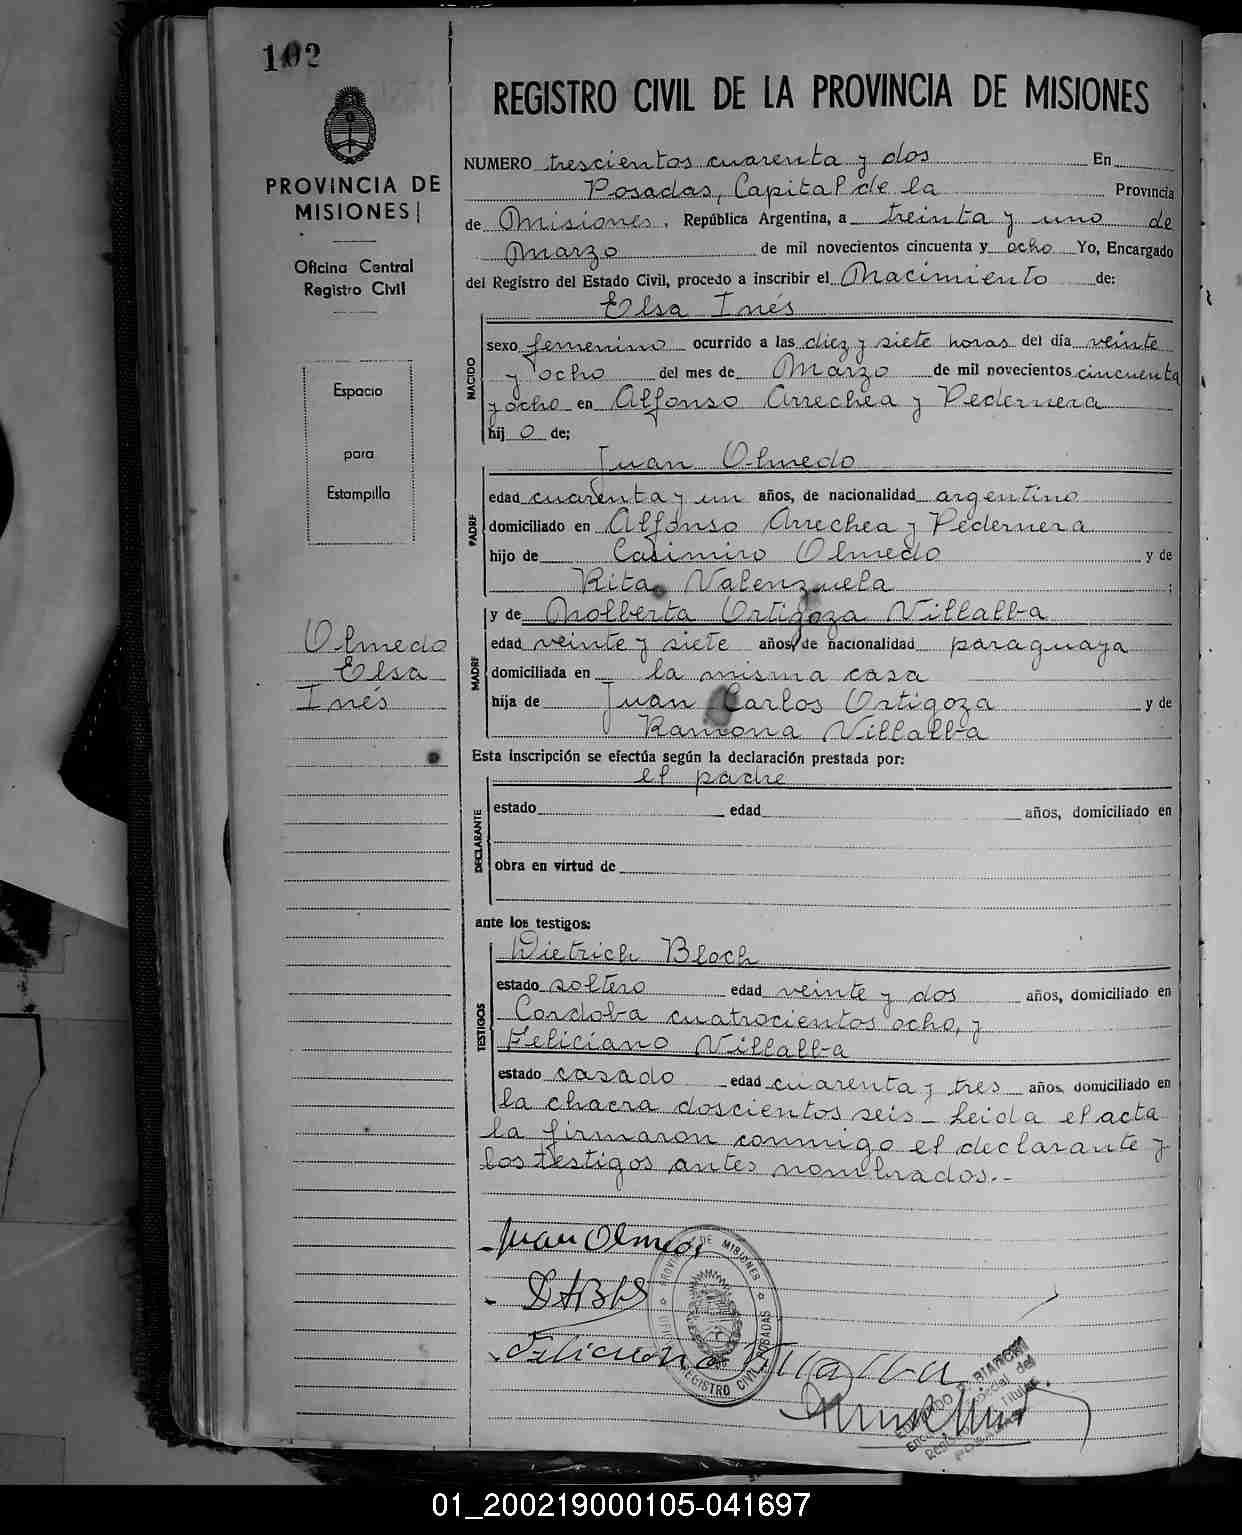 102
REGISTRO CIVIL DE LA PROVINCIA DE MISIONES
PROVINCIA DE
MISIONES
Oficina Central
Registro Civil
Espacio
para
Estampilla
Olmedo
Elsa
Inés
NUMERO trescientos cuarenta y dos En
Posadas, Capital de la Provincia
de Misiones, República Argentina, a treinta y uno de
Marzo de mil novecientos cincuenta y ocho Yo, Encargado
del Registro del Estado Civil, procedo a inscribir el Nacimiento de:
Elsa Inés
NACIDO
sexo femenino ocurrido a las diez y siete horas del día veinte
y ocho del mes de Marzo de mil novecientos cincuenta
y ocho en Alfonso Arrechea y Pedernera
hij o de;
Juan Olmedo
PADRE
edad cuarenta y un años, de nacionalidad argentino
domiciliado en Alfonso Arrechea y Pedernera
hijo de Casimiro Olmedo y de
Rita Valenzuela ;
y de Nolberta Ortigoza Villalba
MADRE
edad veinte y siete años, de nacionalidad paraguaya
domiciliada en la misma casa
hija de Juan Carlos Ortigoza y de
Ramona Villalba
Esta inscripción se efectúa según la declaración prestada por:
el padre
DECLARANTE
estado edad años, domiciliado en
obra en virtud de
ante los testigos:
Dietrich Bloch
TESTIGOS
estado soltero edad veinte y dos años, domiciliado en
Cordoba cuatrocientos ocho, y
Feliciano Villalba
estado casado edad cuarenta y tres años, domiciliado en
la chacra doscientos seis - Leida el acta
la firmaron conmigo el declarante y
los testigos antes nombrados.-
Juan Olmedo
Feliciano Villalba
PROVINCIA DE MISIONES
REGISTRO CIVIL POSADAS
BIANCHI
01_200219000105-041697